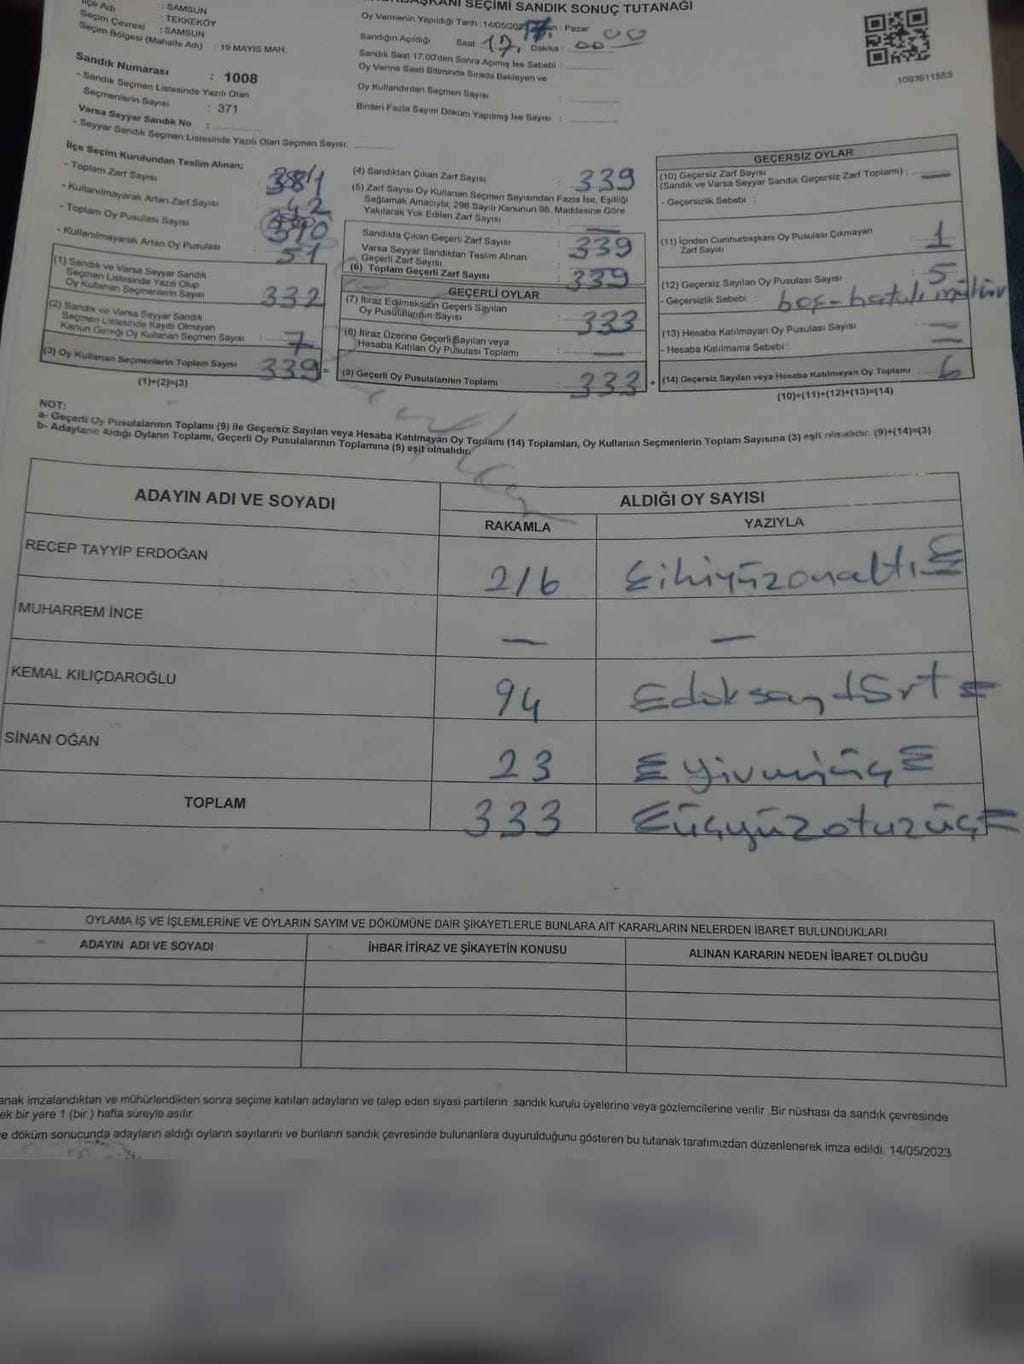 KANI SEÇİMİ SANDIK SONUÇ TUTANAĞI
: SAMSUN
İlçe Adı : TEKKEKÖY
Seçim Çevresi : SAMSUN
Seçim Bölgesi (Mahalle Adı) : 19 MAYIS MAH.
Sandık Numarası : 1008
- Sandık Seçmen Listesinde Yazılı Olan
Seçmenlerin Sayısı : 371
Varsa Seyyar Sandık No :
- Seyyar Sandık Seçmen Listesinde Yazılı Olan Seçmen Sayısı:
Oy Vermenin Yapıldığı Tarih :14/05/202 : Pazar
Sandığın Açıldığı Saat : 17. Dakika : 00
Sandık Saat 17:00'den Sonra Açımış İse Sebebi :
Oy Verme Saati Bitiminde Sırada Bekleyen ve
Oy Kullandırılan Seçmen Sayısı :
Birden Fazla Sayım Döküm Yapılmış İse Sayısı :
1093611553
İlçe Seçim Kurulundan Teslim Alınan;
- Toplam Zarf Sayısı : 381
- Kullanılmayarak Artan Zarf Sayısı : 42
- Toplam Oy Pusulası Sayısı : 390
- Kullanılmayarak Artan Oy Pusulası : 51
(1) Sandık ve Varsa Seyyar Sandık
Seçmen Listesinde Yazılı Olup
Oy Kullanan Seçmenlerin Sayısı : 332
(2) Sandık ve Varsa Seyyar Sandık
Seçmen Listesinde Kayıtlı Olmayan
Kanun Gereği Oy Kullanan Seçmen Sayısı : 7
(3) Oy Kullanan Seçmenlerin Toplam Sayısı : 339=
(1)+(2)=(3)
(4) Sandıktan Çıkan Zarf Sayısı : 339
(5) Zarf Sayısı Oy Kullanan Seçmen Sayısından Fazla İse, Eşitliği
Sağlamak Amacıyla, 298 Sayılı Kanunun 98. Maddesine Göre
Yakılarak Yok Edilen Zarf Sayısı : —
Sandıkta Çıkan Geçerli Zarf Sayısı : 339
Varsa Seyyar Sandıktan Teslim Alınan
Geçerli Zarf Sayısı :
(6) Toplam Geçerli Zarf Sayısı : 339
GEÇERLİ OYLAR
(7) İtiraz Edilmeksizin Geçerli Sayılan
Oy Pusulalarının Sayısı : 333
(8) İtiraz Üzerine Geçerli Sayılan veya
Hesaba Katılan Oy Pusulası Toplamı : —
(9) Geçerli Oy Pusulalarının Toplamı : 333 +
GEÇERSİZ OYLAR
(10) Geçersiz Zarf Sayısı
(Sandık ve Varsa Seyyar Sandık Geçersiz Zarf Toplamı) : —
- Geçersizlik Sebebi :
(11) İçinden Cumhurbaşkanı Oy Pusulası Çıkmayan
Zarf Sayısı : 1
(12) Geçersiz Sayılan Oy Pusulası Sayısı : 5
- Geçersizlik Sebebi : boş-hatalı mühür
(13) Hesaba Katılmayan Oy Pusulası Sayısı : —
- Hesaba Katılmama Sebebi : —
(14) Geçersiz Sayılan veya Hesaba Katılmayan Oy Toplamı : 6
(10)+(11)+(12)+(13)=(14)
NOT:
a- Geçerli Oy Pusulalarının Toplamı (9) ile Geçersiz Sayılan veya Hesaba Katılmayan Oy Toplamı (14) Toplamları, Oy Kullanan Seçmenlerin Toplam Sayısına (3) eşit olmalıdır. (9)+(14)=(3)
b- Adayların Aldığı Oyların Toplamı, Geçerli Oy Pusulalarının Toplamına (9) eşit olmalıdır.
ADAYIN ADI VE SOYADI ALDIĞI OY SAYISI
RAKAMLA YAZIYLA
RECEP TAYYİP ERDOĞAN 216 ikiyüzonaltı
MUHARREM İNCE — —
KEMAL KILIÇDAROĞLU 94 doksandört
SİNAN OĞAN 23 yirmiüç
TOPLAM 333 üçyüzotuzüç
OYLAMA İŞ VE İŞLEMLERİNE VE OYLARIN SAYIM VE DÖKÜMÜNE DAİR ŞİKAYETLERLE BUNLARA AİT KARARLARIN NELERDEN İBARET BULUNDUKLARI
ADAYIN ADI VE SOYADI İHBAR İTİRAZ VE ŞİKAYETİN KONUSU ALINAN KARARIN NEDEN İBARET OLDUĞU
anak imzalandıktan ve mühürlendikten sonra seçime katılan adayların ve talep eden siyasi partilerin sandık kurulu üyelerine veya gözlemcilerine verilir .Bir nüshası da sandık çevresinde
ek bir yere 1 (bir ) hafta süreyle asılır.
e döküm sonucunda adayların aldığı oyların sayılarını ve bunların sandık çevresinde bulunanlara duyurulduğunu gösteren bu tutanak tarafımızdan düzenlenerek imza edildi. 14/05/2023